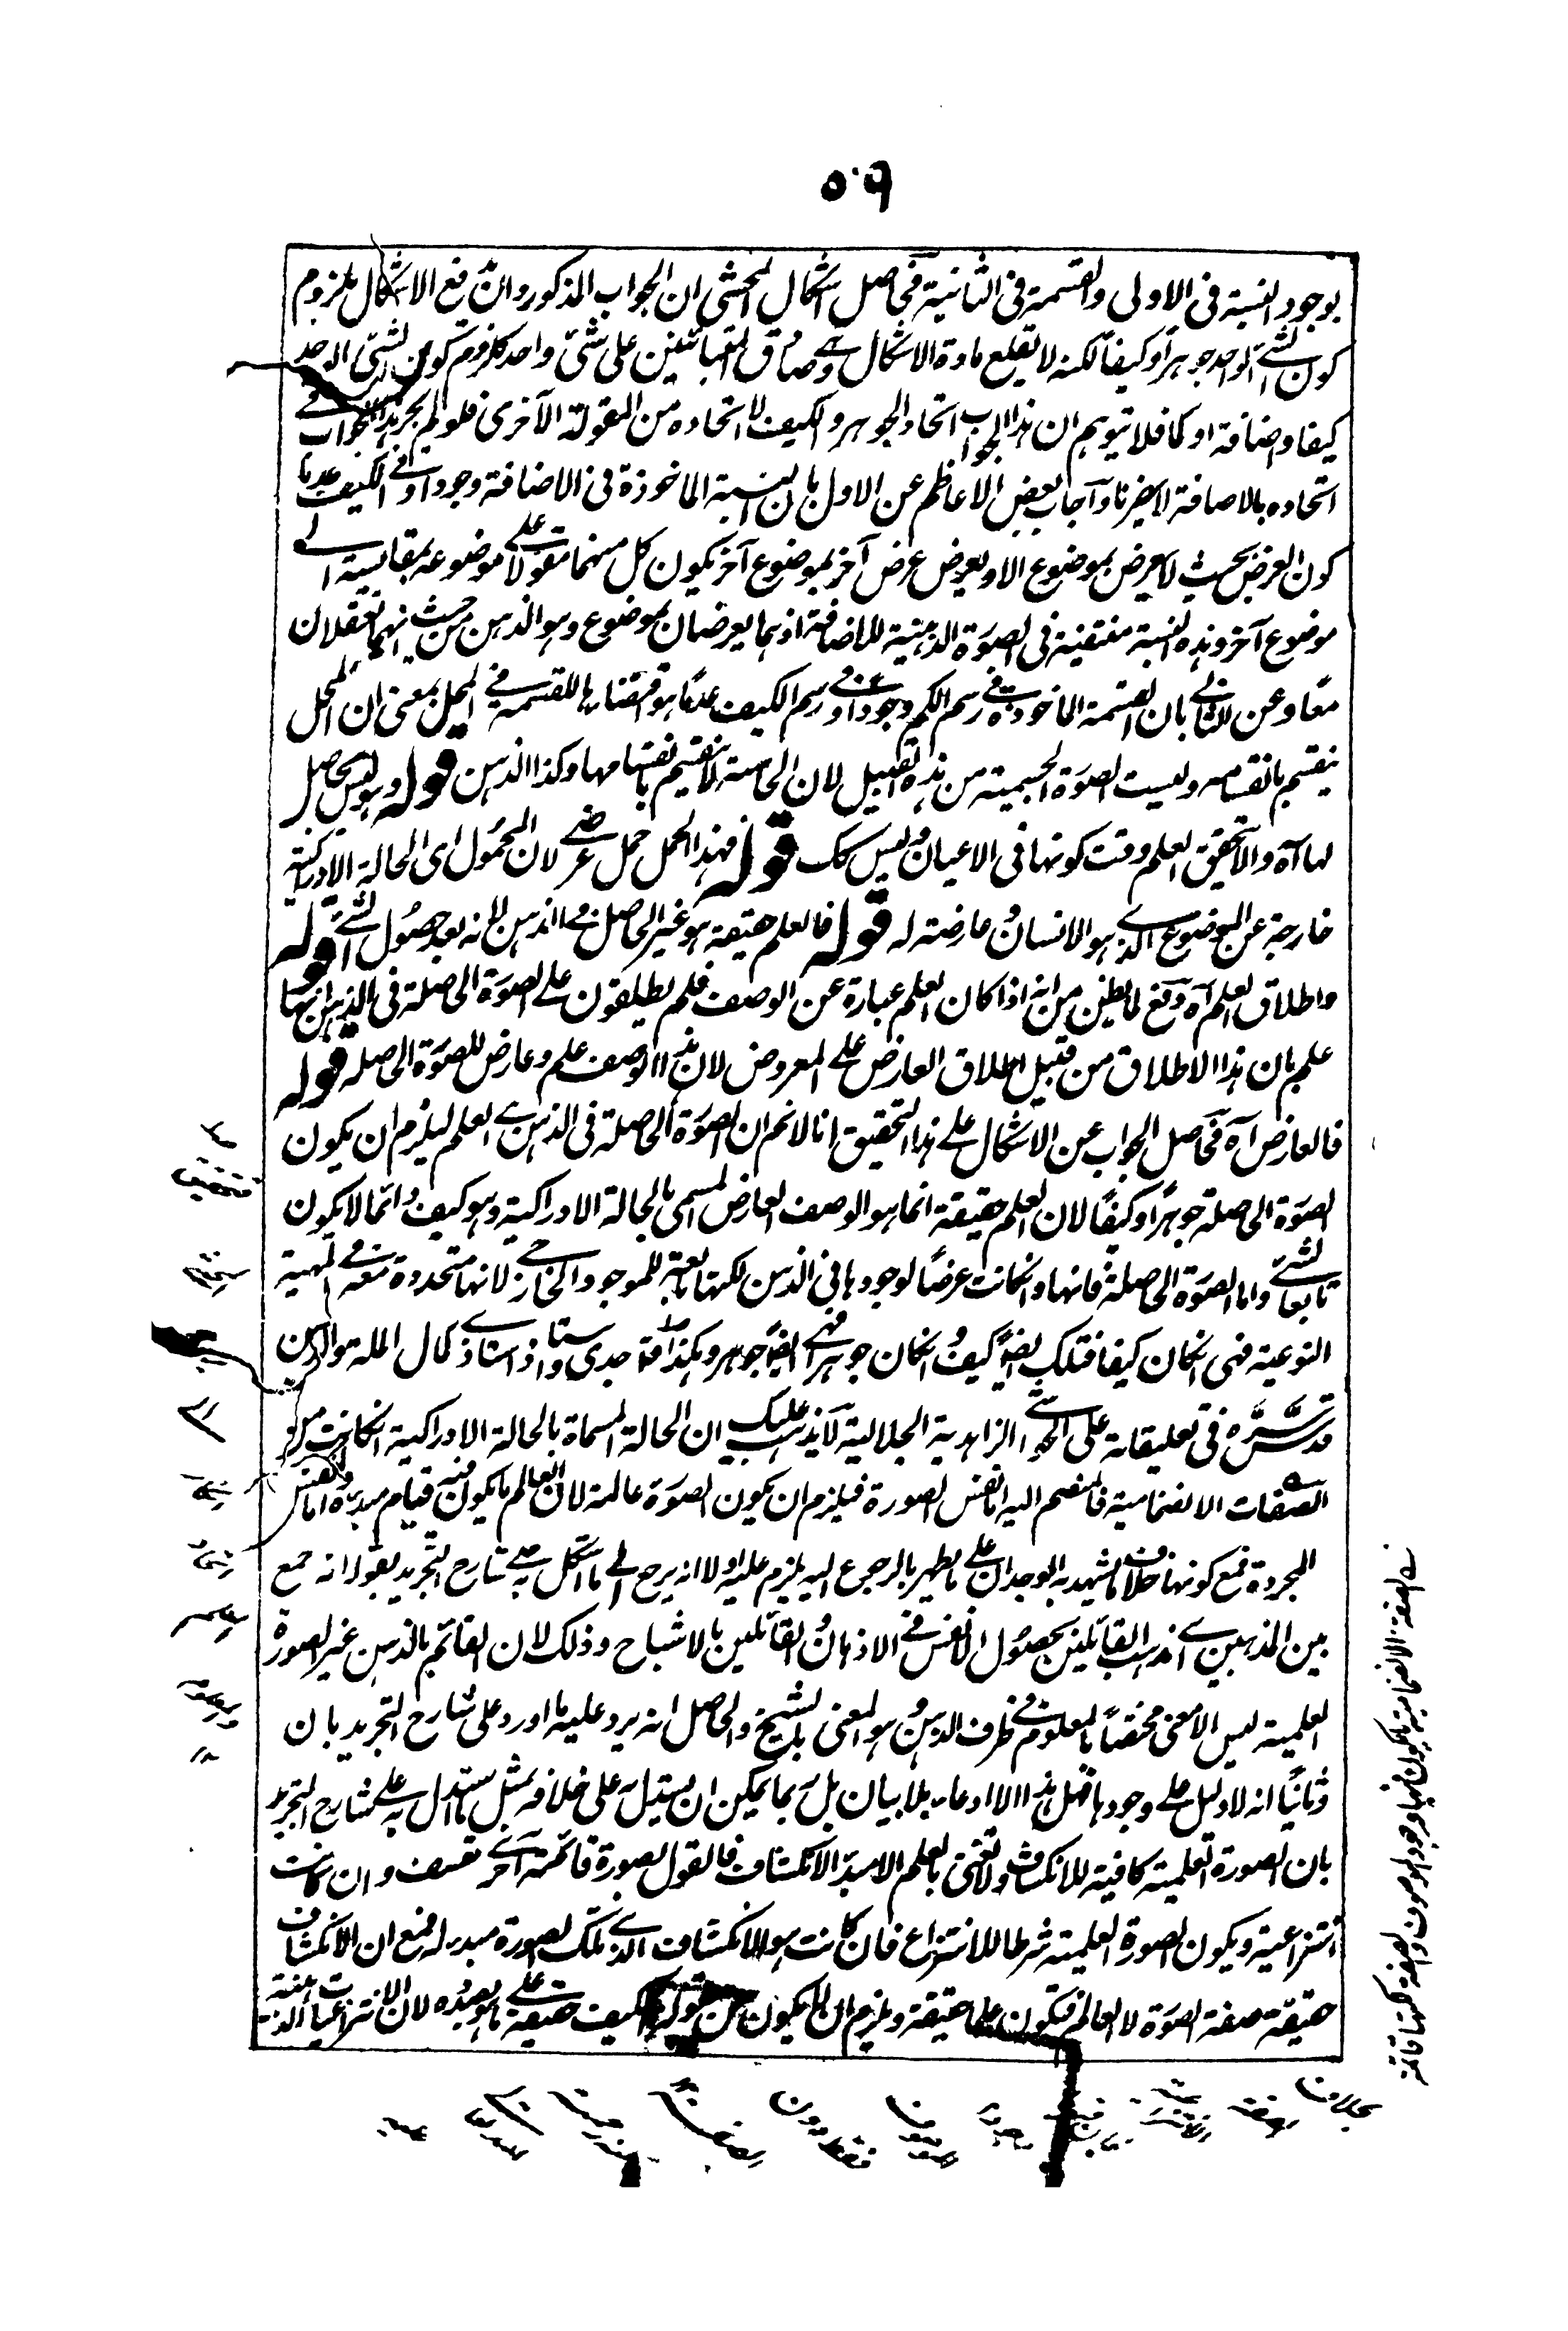 ٥٠٩
بوجود النسبة فى الاولى والقسمة فى الثانية فحاصل اشكال المحشى ان الجواب المذكور وان دفع الاشكال بلزوم
كون الشئ الواحد جوهرا وكيفا لكنه لا يقلع مادة الاشكال وهى صدق المتباينين على شئ واحد كلزوم كون الشئ الواحد
كيفا واضافة او كما فلا يتوهم ان هذا الجواب اتحاد الجوهر والكيف لا اتحاده من المقولة الآخرى فلو لم يجر هذا الجواب فى
اتحاده بالاضافة لا يضرنا وآجاب بعض الاعاظم عن الاول بان النسبة الماخوذة فى الاضافة وجودا وفى الكيف عدما
كون العرض بحيث لا يعرض بموضوع الا ويعرض عرض آخر بموضوع آخر يكون كل منهما مقولا على موضوعه بمقايسة الى
موضوع آخر وهذه النسبة منتفية فى الصورة الذهنية للاضافة اذ هما يعرضان بموضوع وهو الذهن من حيث انهما تعقلان
معا وعن الثانى بان القسمة الماخوذة فى رسم الكم وجودا وفى رسم الكيف عدما هو اقتضاءها للقسمة فى المحل بمعنى ان المحل
ينقسم بانقسامه وليست الصورة الجسمية من هذه القبيل لان الحاسة لا تنقسم بانقسامها وكذا الذهن قوله وهو ليس بحاصل
لها آه والا تحقق العلم وقت كونها فى الاعيان وليس كك قوله فهذا الحمل حمل عرضى لان المحمول اى الحالة الادراكية
خارجة عن الموضوع الذى هو الانسان وعارضة له قوله فالعلم حقيقة هو غير الحاصل فى الذهن لانه بعد حصول الشئ قوله
واطلاق العلم آه دفع لما يظن من انه اذا كان العلم عبارة عن الوصف فلم يطلقون على الصورة الحاصلة فى الذهن انها
علم بان هذا الاطلاق من قبيل اطلاق العارض على المعروض لان هذا الوصف علم وعارض للصورة الحاصله قوله
فالعارض آه فحاصل الجواب عن الاشكال على هذا التحقيق انا لانم ان الصورة الحاصلة فى الذهن هى العلم ليلزم ان يكون
الصورة الحاصلة جوهرا وكيفا لان العلم حقيقة انما هو الوصف العارض المسمى بالحالة الادراكية وهو كيف دائما لا يكون
تابعا لشئ واما الصورة الحاصلة فانها وانكانت عرضا لوجودها فى الذهن لكنها تابعة للموجود الخارجى لانها متحدة معه فى المهية
النوعية فهى انكان كيفا فتلك ايضا كيف وانكان جوهرا فهى ايضا جوهر وهكذا افاد جدى واستاذ استاذى كمال الملة والدين
قدس سره فى تعليقاته على الحواشى الزاهدية الجلالية لا يذهب عليك ان الحالة المسماة بالحالة الادراكية انكانت من
الصفات الانضمامية فالمنضم اليه اما نفس الصورة فيلزم ان يكون الصورة عالمة لان العالم ما يكون فيه قيام مبدئه واما النفس
المجردة فمع كونها خلاف ما يشهد به الوجدان على ما يظهر بالرجوع اليه يلزم عليه اولا انه يرجع الى ما اشكل به على شارح التجريد بقوله انه جمع
بين المذهبين اى مذهب القائلين بحصول الانفس فى الاذهان والقائلين بالاشباح وذلك لان القائم بالذهن غير الصورة
العلمية ليس الا معنى مختصا بالمعلوم فى ظرف الذهن وهو المعنى بالشبح والحاصل انه يرد عليه ما اورد على شارح التجريد بان
وثانيا انه لا دليل على وجودها فهل هذا الا ادعاء بلا بيان بل ربما يمكن ان يستدل على خلافه بمثل ما ستدل به على شارح التجريد
بان الصورة العلمية كافية للانكشاف ولا نعنى بالعلم الا مبدأ الانكشاف فالقول بصورة قائمة آخرى تعسف وان كانت
انتزاعية ويكون الصورة العلمية شرطا للانتزاع فان كانت هو الانكشاف الذى تلك الصورة مبدء له فمع ان الانكشاف
حقيقة صفة الصورة لا العالم فتكون علما حقيقة ويلزم ان لا يكون من مقولة الكيف حقيقة على ما هو بصدده لان الانتزاعيات